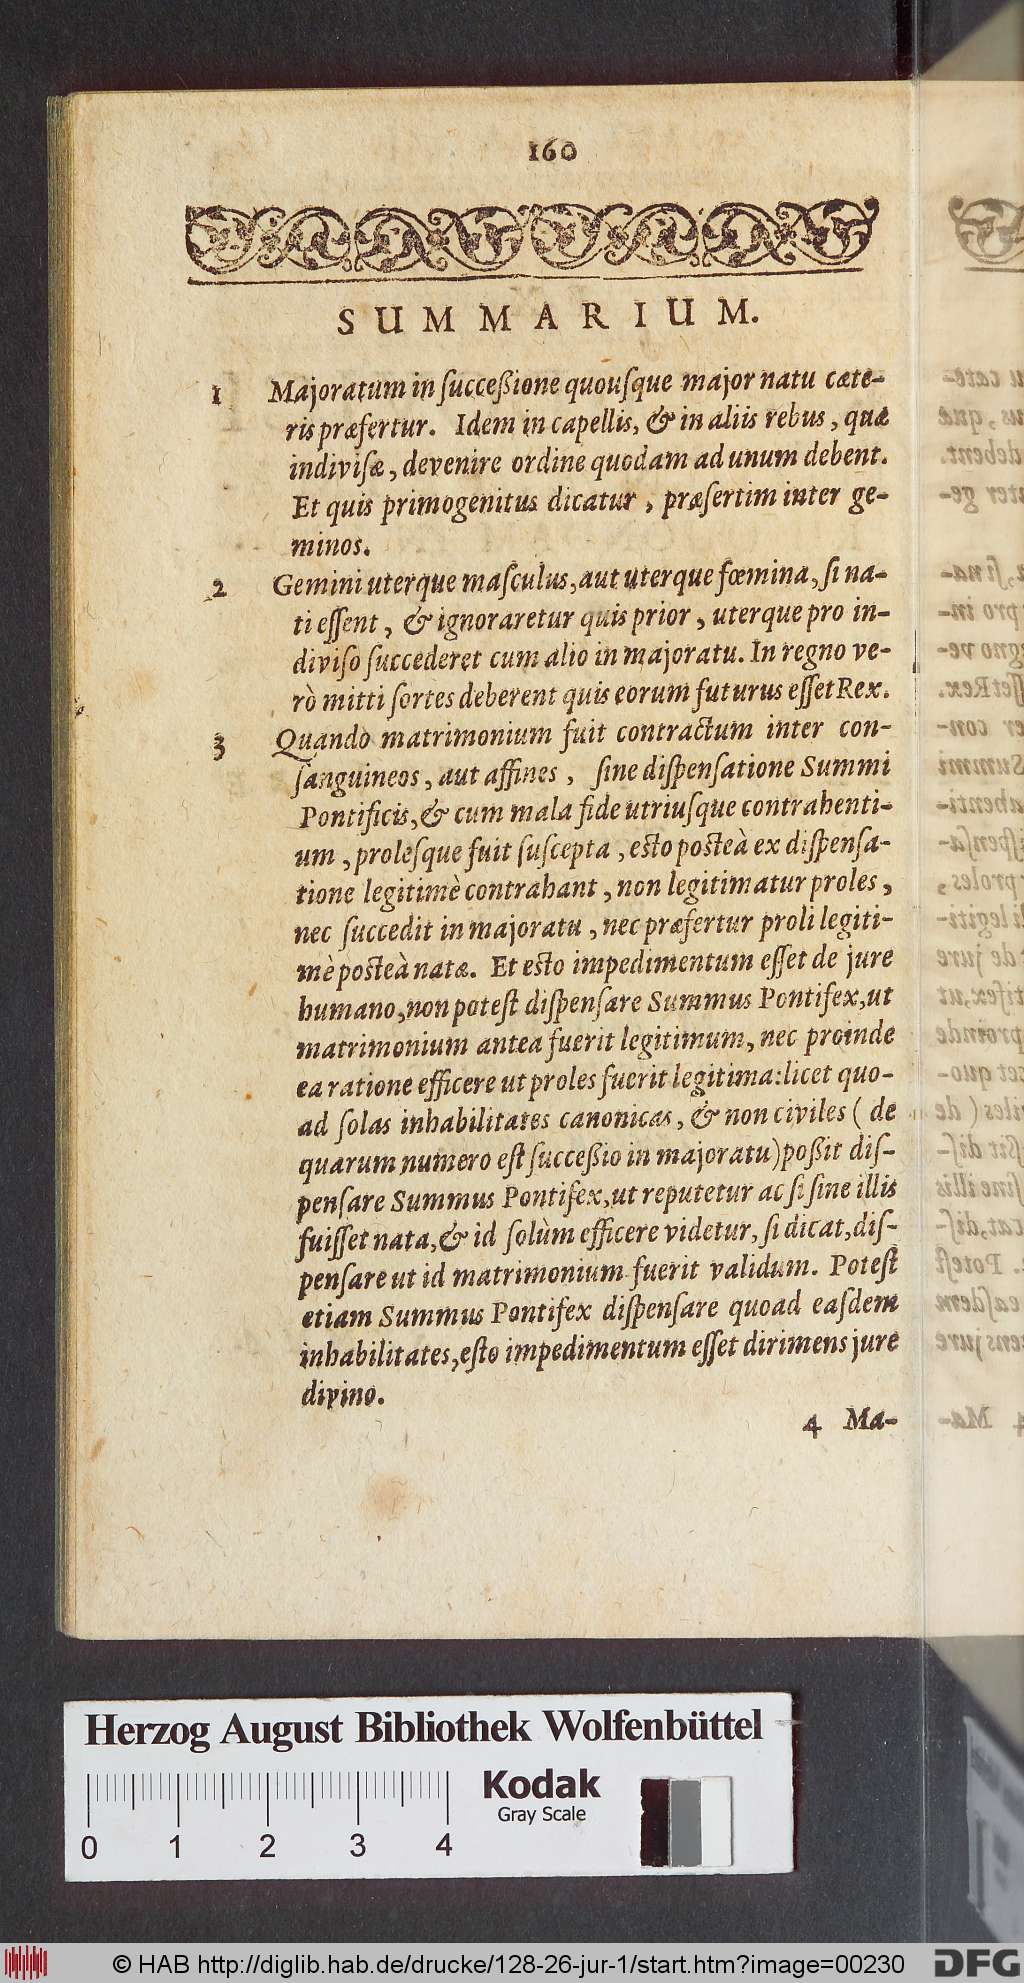 160
SUMMARIUM.
1 Majoratum in ſucceßione quouſque major natu cæte-
ris præfertur. Idem in capellis, & in aliis rebus, quæ
indiviſæ, devenire ordine quodam ad unum debent.
Et quis primogenitus dicatur, præſertim inter ge-
minos.
2 Gemini uterque maſculus, aut uterque fœmina, ſi na-
ti eſſent, & ignoraretur quis prior, uterque pro in-
diviſo ſuccederet cum alio in majoratu. In regno ve-
rò mitti ſortes deberent quis eorum futurus eſſet Rex.
3 Quando matrimonium fuit contractum inter con-
ſanguineos, aut affines, ſine diſpenſatione Summi
Pontificis, & cum mala fide utriusque contrahenti-
um, proleſque fuit ſuſcepta, esto posteà ex diſpenſa-
tione legitimè contrahant, non legitimatur proles,
nec ſuccedit in majoratu, nec præfertur proli legiti-
mè posteà natæ. Et esto impedimentum eſſet de jure
humano, non poteſt diſpenſare Summus Pontifex, ut
matrimonium antea fuerit legitimum, nec proinde
ea ratione efficere ut proles fuerit legitima: licet quo-
ad ſolas inhabilitates canonicas, & non civiles (de
quarum numero eſt ſucceßio in majoratu) poßit diſ-
penſare Summus Pontifex, ut reputetur ac ſi ſine illis
fuiſſet nata, & id ſolùm efficere videtur, ſi dicat, diſ-
penſare ut id matrimonium fuerit validum. Poteſt
etiam Summus Pontifex diſpenſare quoad eaſdem
inhabilitates, eſto impedimentum eſſet dirimens jure
divino.
4 Ma-
Herzog August Bibliothek Wolfenbüttel
Kodak
Gray Scale
0 1 2 3 4
© HAB http://diglib.hab.de/drucke/128-26-jur-1/start.htm?image=00230
DFG